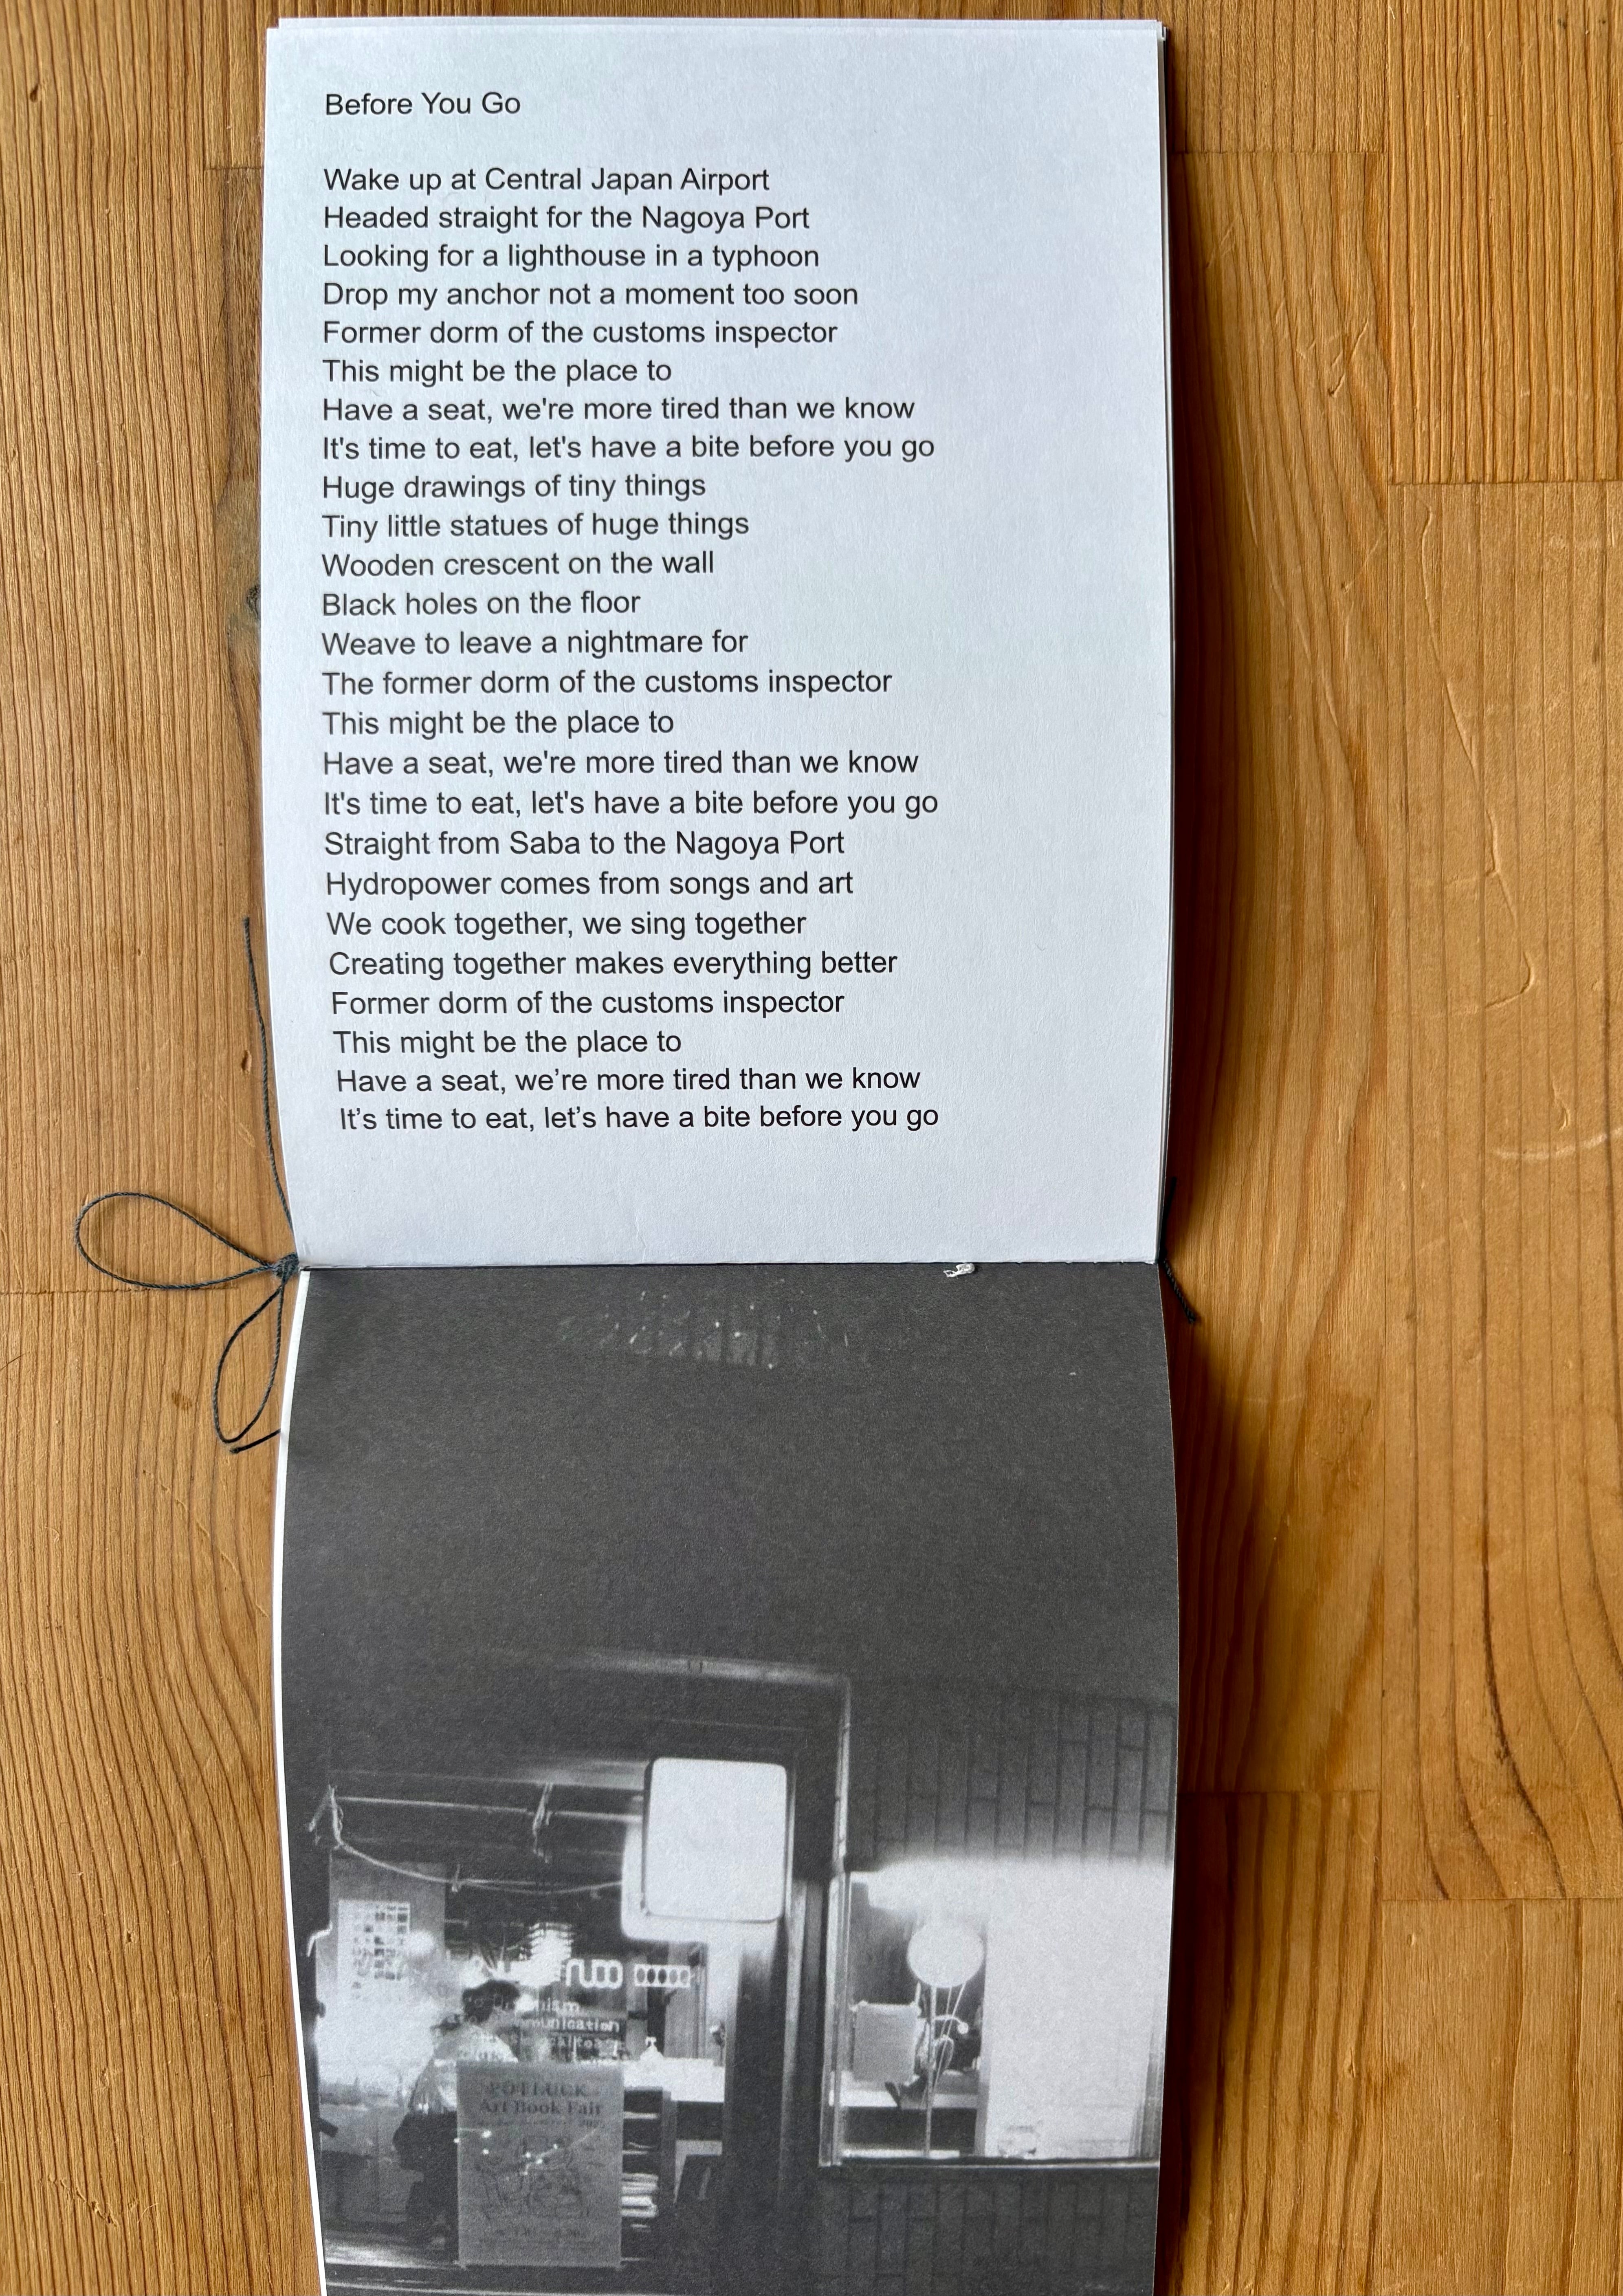 Before You Go
Wake up at Central Japan Airport
Headed straight for the Nagoya Port
Looking for a lighthouse in a typhoon
Drop my anchor not a moment too soon
Former dorm of the customs inspector
This might be the place to
Have a seat, we're more tired than we know
It's time to eat, let's have a bite before you go
Huge drawings of tiny things
Tiny little statues of huge things
Wooden crescent on the wall
Black holes on the floor
Weave to leave a nightmare for
The former dorm of the customs inspector
This might be the place to
Have a seat, we're more tired than we know
It's time to eat, let's have a bite before you go
Straight from Saba to the Nagoya Port
Hydropower comes from songs and art
We cook together, we sing together
Creating together makes everything better
Former dorm of the customs inspector
This might be the place to
Have a seat, we’re more tired than we know
It’s time to eat, let’s have a bite before you go
POTLUCK
Art Book Fair